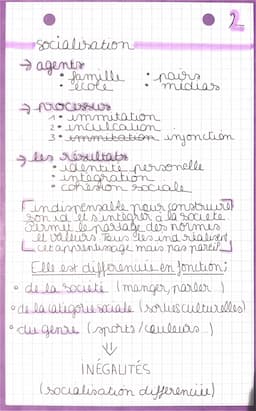 2
socialisation
→ agents
• famille • pairs
• école • médias
→ processus
1 • immitation
2 • inculcation
3 • immitation injonction
→ les résultats
• identité personelle
• intégration
• cohésion sociale
indispensable pour construire
son id et s'intégrer à la société
Permet le partage des normes
et valeurs. Tous les ind réalisent
cet apprentissage mais pas
Elle est différenciée en fonction:
• de la société (manger, parler)
• de la catégorie sociale (sorties culturelles)
• du genre (sports / couleurs..)
⇓
INÉGALITÉS
(socialisation différenciée)